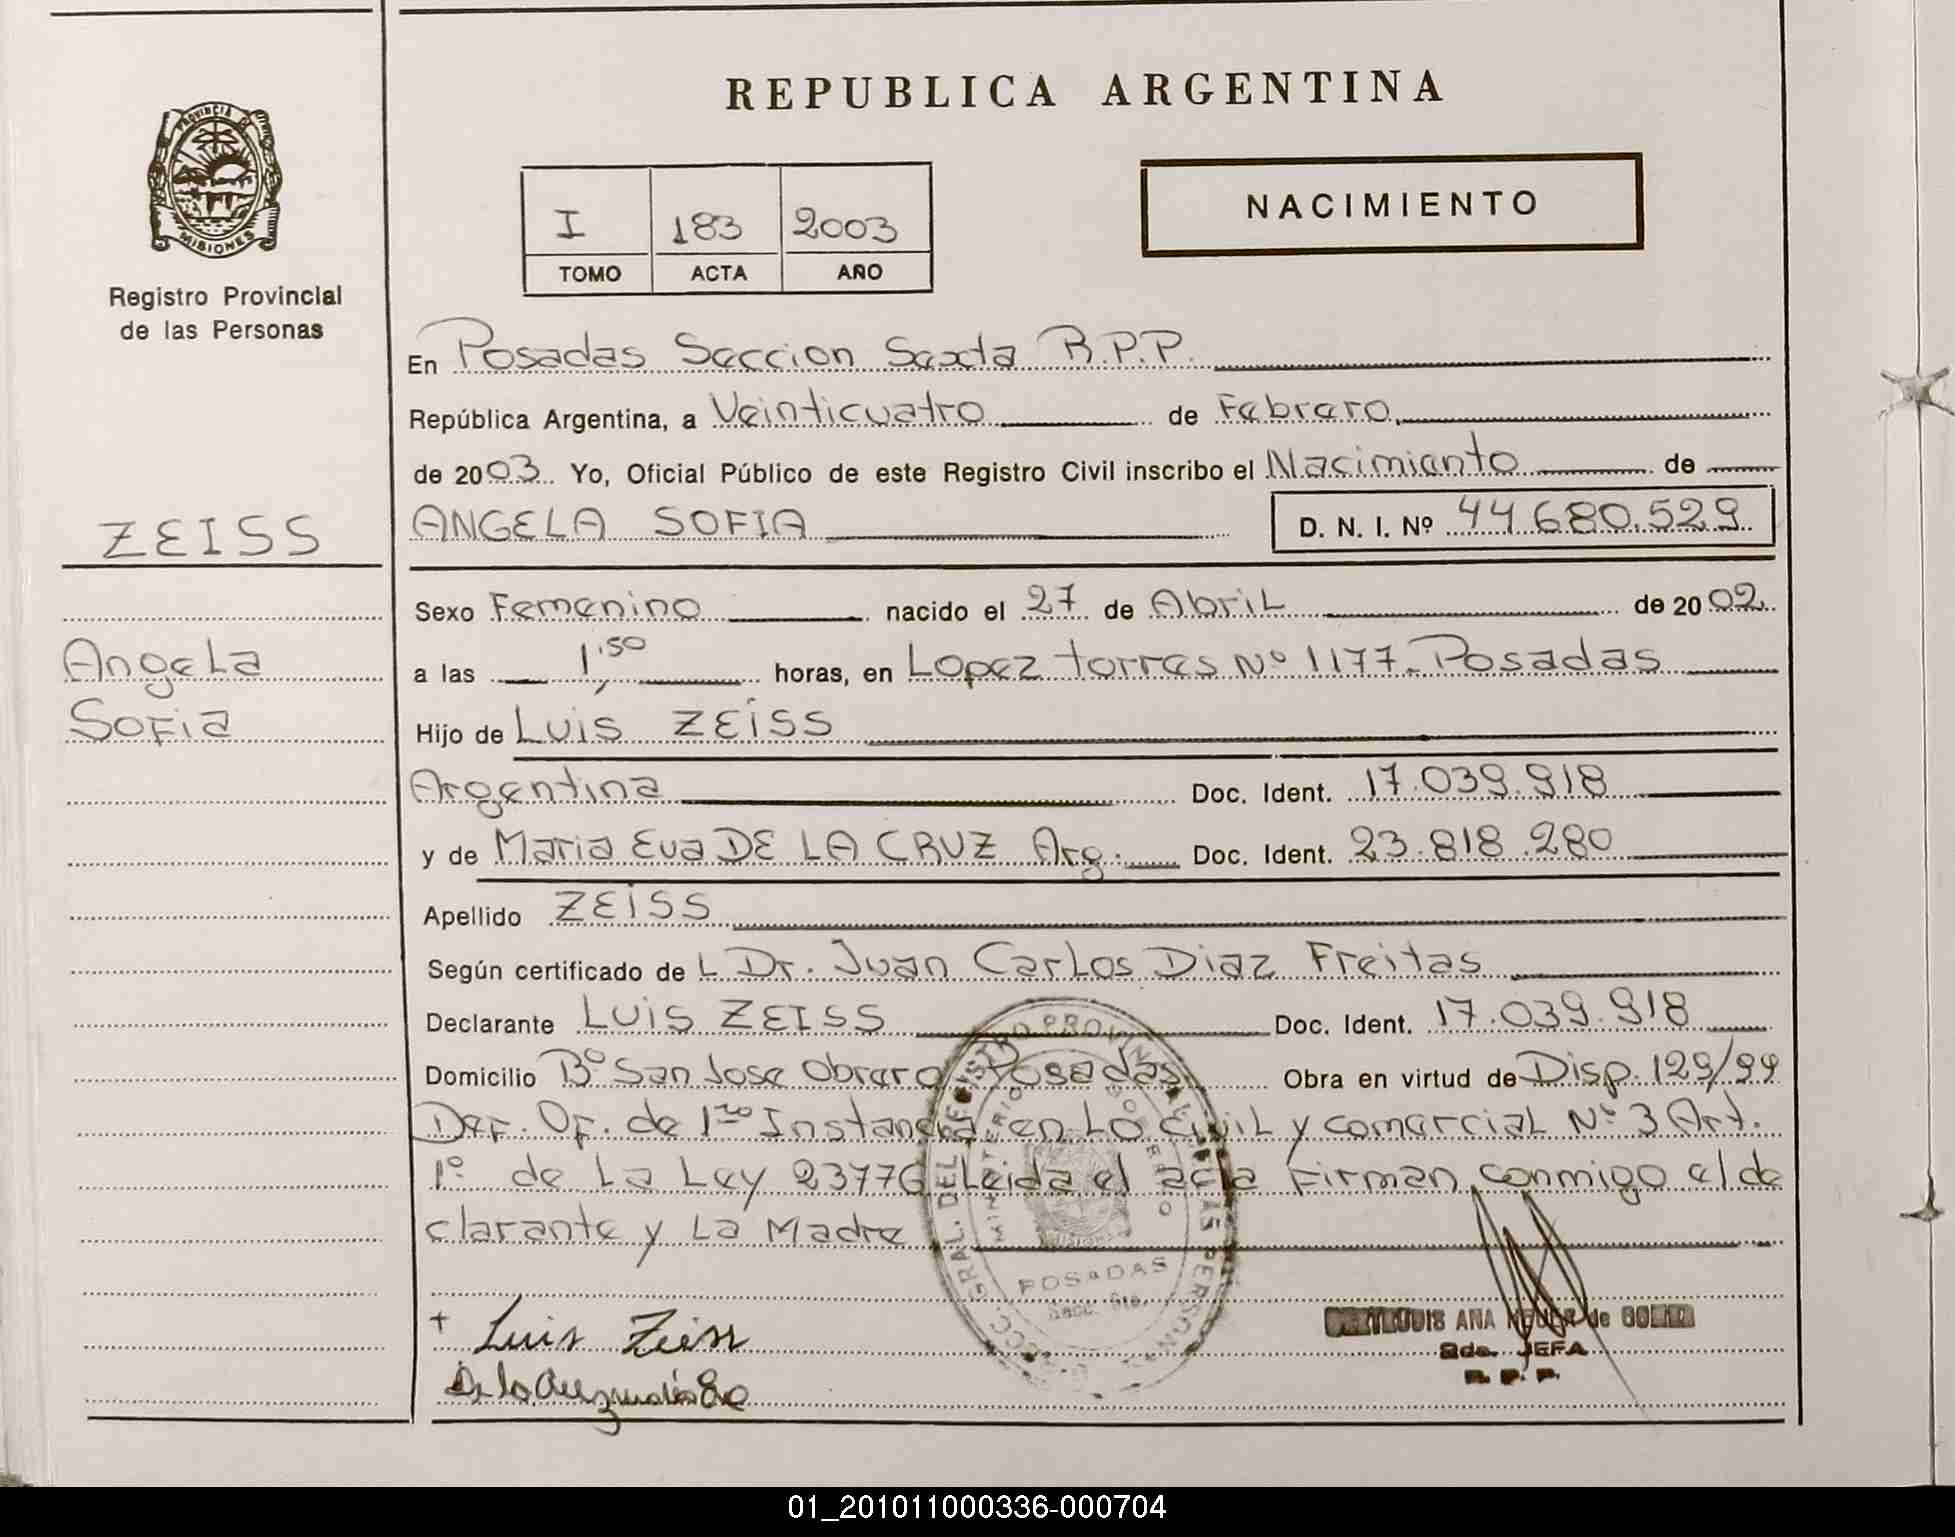 REPUBLICA ARGENTINA
PROVINCIA DE
MISIONES
Registro Provincial
de las Personas
I 183 2003
TOMO ACTA AÑO
NACIMIENTO
En Posadas Seccion Sexta R.P.P.
República Argentina, a Veinticuatro de Febrero
de 2003 Yo, Oficial Público de este Registro Civil inscribo el Nacimiento de
ZEISS
ANGELA SOFIA D. N. I. Nº 44.680.529
Sexo Femenino nacido el 27 de Abril de 2002
Angela
a las 1,50 horas, en Lopez torres Nº 1177. Posadas
Sofia
Hijo de Luis ZEISS
Argentina Doc. Ident. 17.039.918
y de Maria Eva DE LA CRUZ Arg. Doc. Ident. 23.818.280
Apellido ZEISS
Según certificado de L Dr. Juan Carlos Diaz Freitas
Declarante Luis ZEISS Doc. Ident. 17.039.918
Domicilio Bº San Jose Obrero Posadas Obra en virtud de Disp. 129/99
Def. Of. de 1ra Instancia en Lo civil y comercial Nº 3 Art.
1º de La Ley 23776 Leida el acta Firman conmigo el de
clarante y La Madre
POSADAS
Secc. 6ta.
+ Luis Zeiss
De la Cruz María Eva
ANA de
JEFA
R. P. P.
01_201011000336-000704